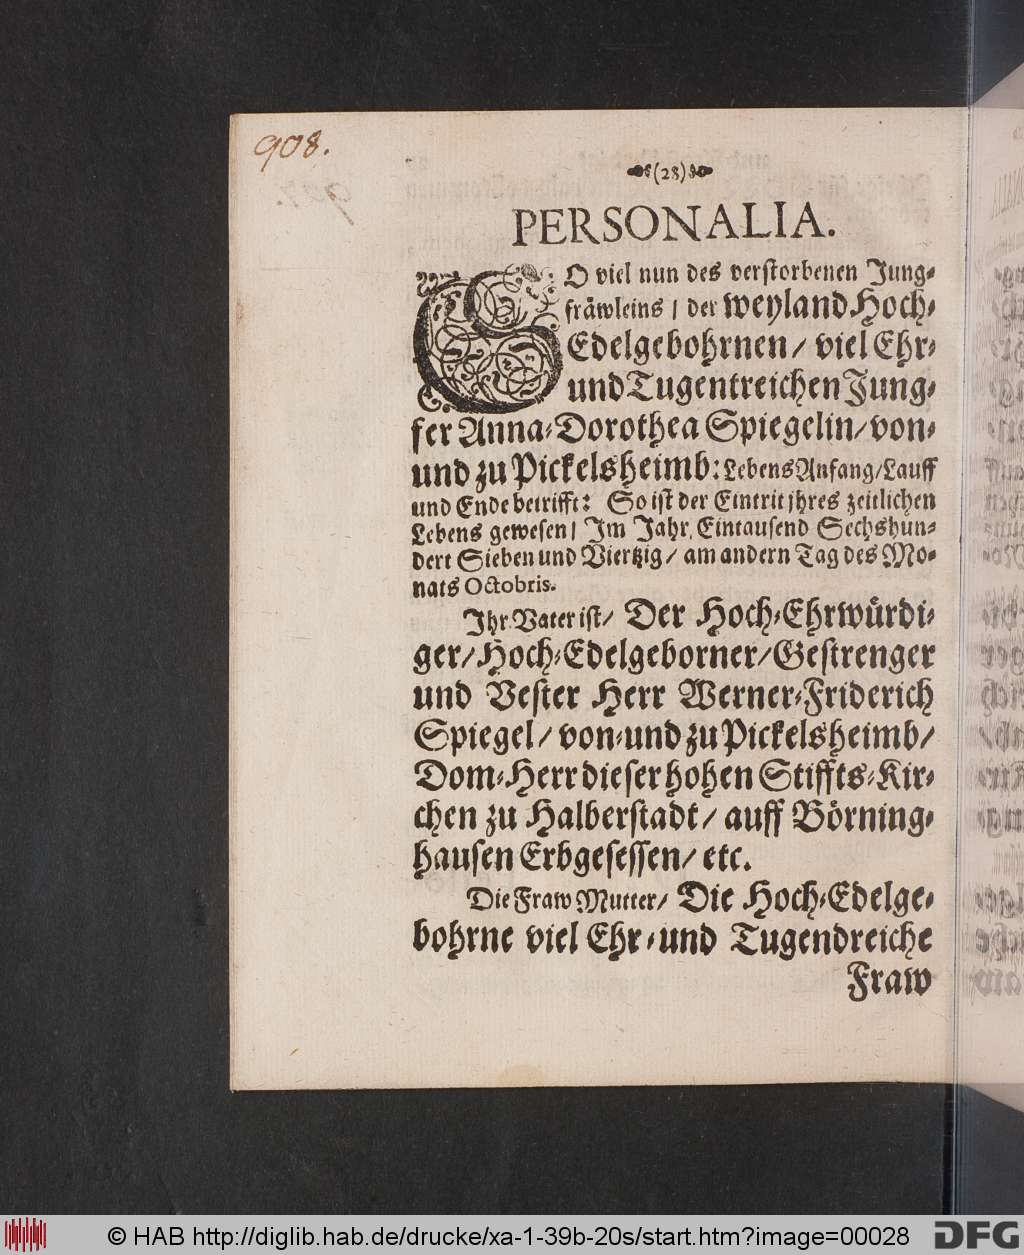 908.
(28)
PERSONALIA.
SO viel nun des verstorbenen Jung-
fräwleins / der weyland Hoch-
Edelgebohrnen / viel Ehr-
und Tugentreichen Jung-
fer Anna-Dorothea Spiegelin / von-
und zu Pickelsheimb: Lebens Anfang / Lauff
und Ende betrifft: So ist der Eintrit jhres zeitlichen
Lebens gewesen / Im Jahr, Eintausend Sechshun-
dert Sieben und Viertzig / am andern Tag des Mo-
nats Octobris.
Ihr Vater ist / Der Hoch-Ehrwürdi-
ger / Hoch-Edelgeborner / Gestrenger
und Vester Herr Werner-Friderich
Spiegel / von-und zu Pickelsheimb /
Dom-Herr dieser hohen Stiffts-Kir-
chen zu Halberstadt / auff Börning-
hausen Erbgesessen / etc.
Die Fraw Mutter / Die Hoch-Edelge-
bohrne viel Ehr-und Tugendreiche
Fraw
© HAB http://diglib.hab.de/drucke/xa-1-39b-20s/start.htm?image=00028
DFG